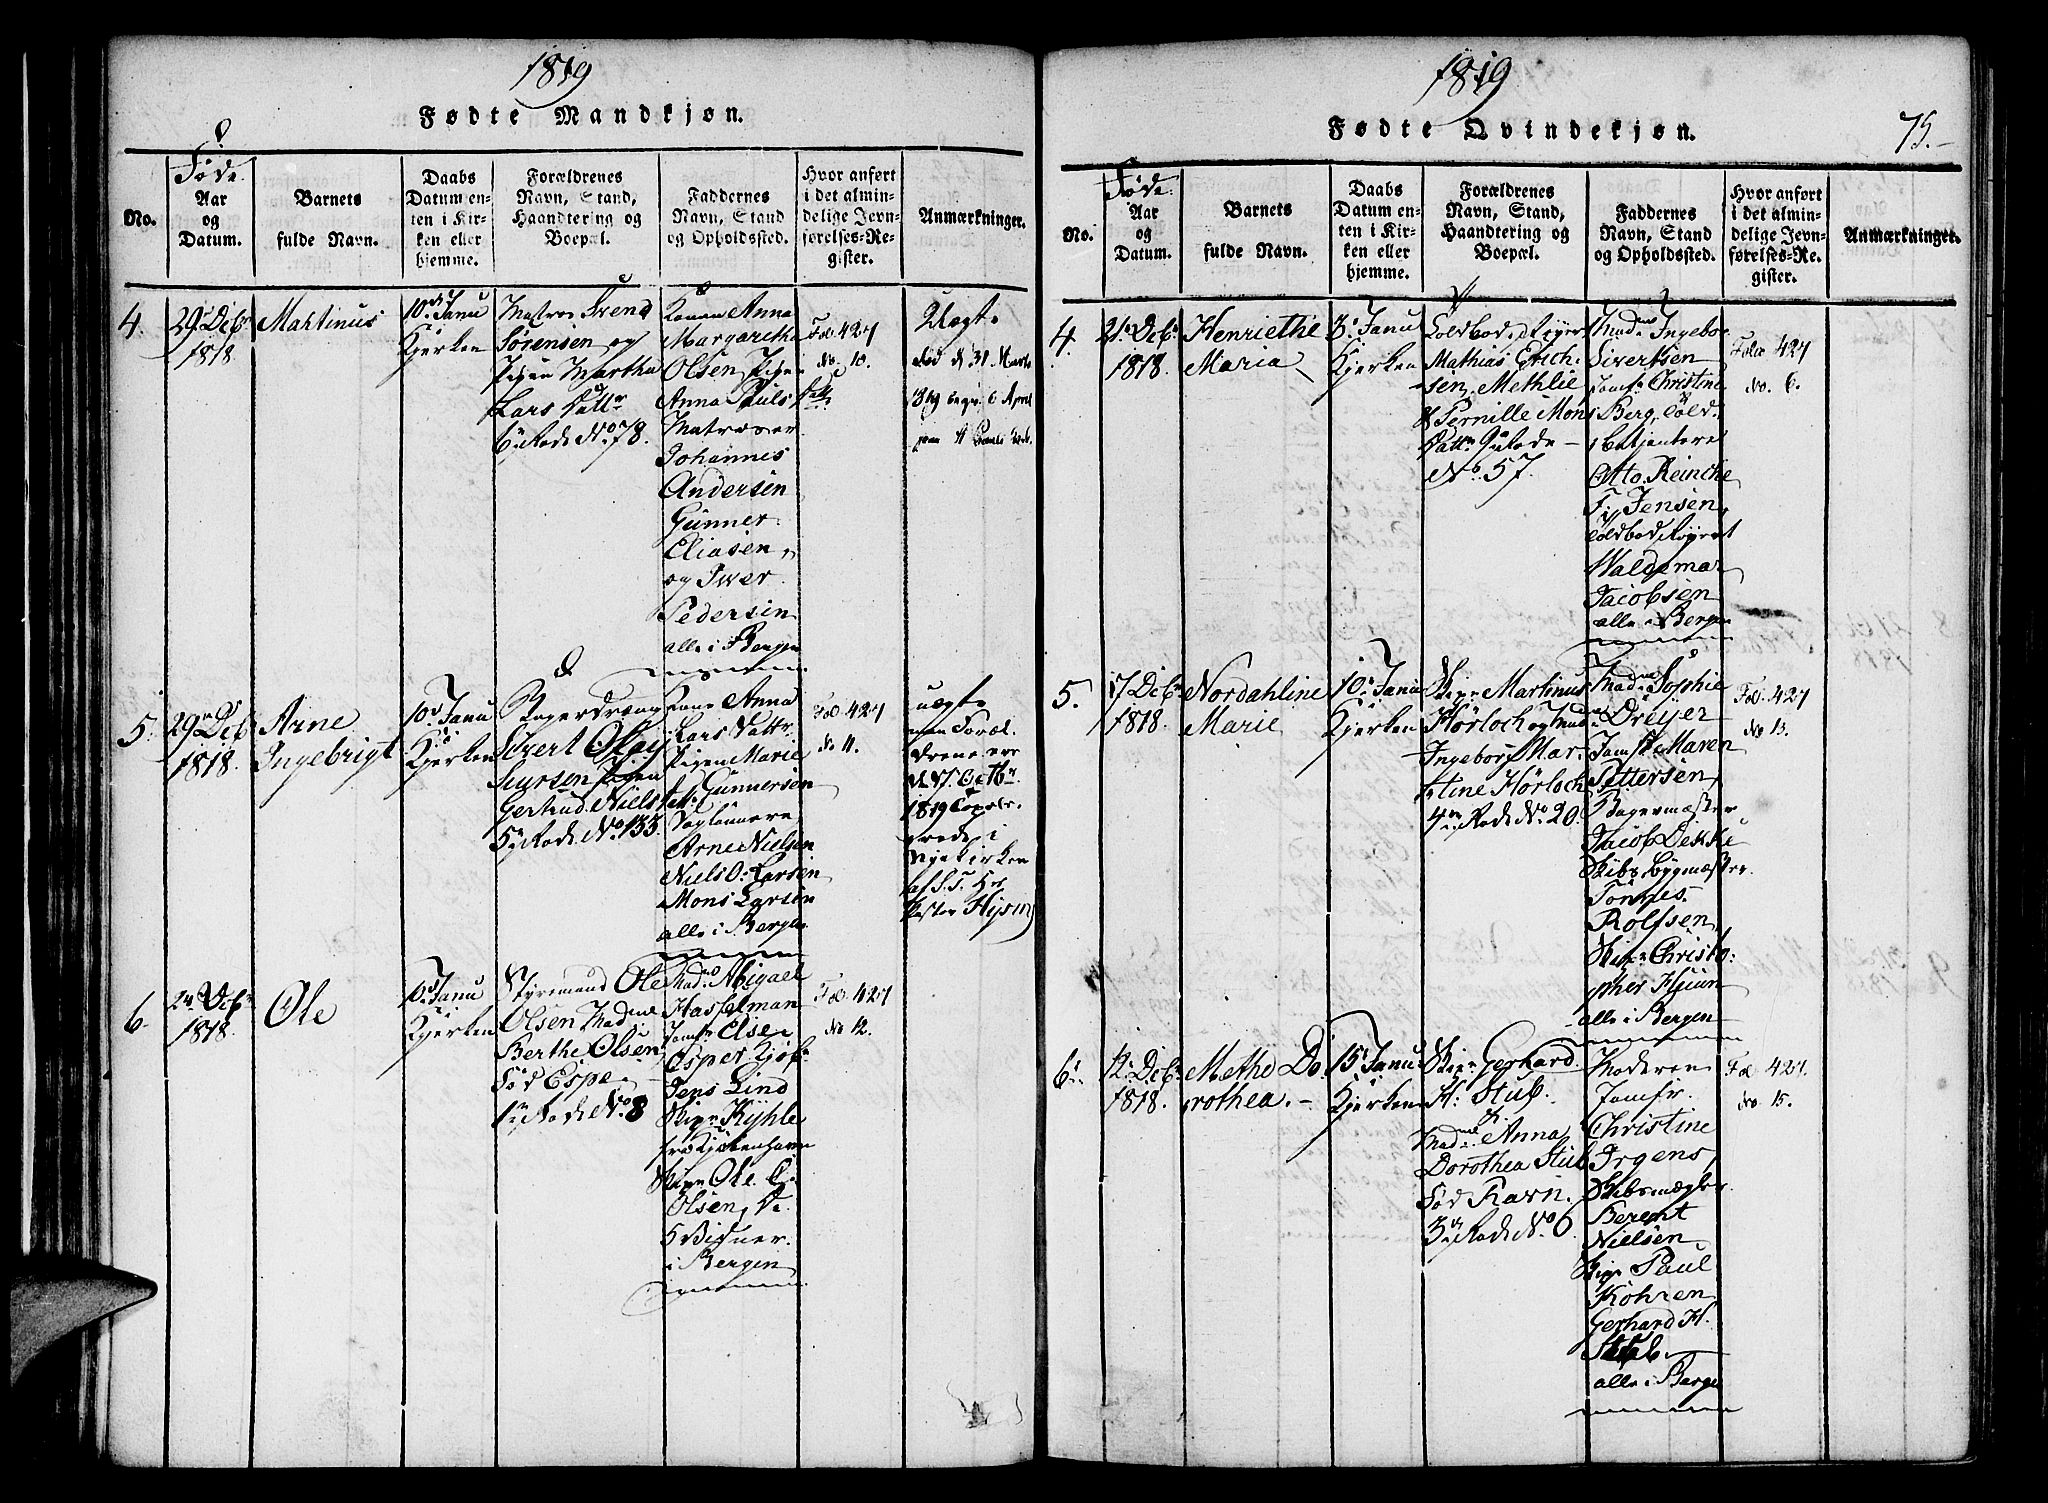 1819
Fødte Mandkjøn.
Føde
Aar
og
Datum.
No.
Barnets
fulde Navn.
Daabs
Datum en-
ten i Kir-
ken eller
hjemme.
Forældrenes
Navn, Stand,
Haandtering og
Boepæl.
Faddernes
Navn, Stand
og Opholdssted.
Hvor anført
i det almin-
delige Jevn-
førelses-Re-
gister.
Anmærkninger.
4.
29 Decbr
1818.
Martinus
10 Janu
Kjerken
Matros Svend
Sørensen og
Pigen Martha
Lars Datter
6 Rode No. 78.
Konen Anna
Margaretha
Olsen, Pigen
Anna Pauls
Matroser
Johannes
Andersen
Gunner
Eliasen,
og Iwer
Pedersen
alle i Bergen
Fol. 427
No. 10.
Uægte
død d. 31 Marts
1819 begr. 6 April
5.
29 Decb
1818.
Arne
Ingebrigt
10 Janu
Kjerken
Bagerdreng
Sivert Olay
Siursen Pigen
Gertrud Niels
5 Rode No. 133.
Kone Anna
Lars Dattr
Pigen Marie
Gunnersen
Arne Nielsen
Niels O. Larsen
Mons Larsen
alle i Bergen
Fol. 427
No 11.
uægte
men Foræl
drene ere
1819 Copule
rede i
Nykirken
af S. T. Hr
Pastor
6.
24 Decbr
1818.
Ole
10 Janu
Kjerken
Styrmand Ole
Olsen Madme
Berthe Olsen
Fød Espe
1 Rode No. 8
Mad. Abigael
Hasselman
Jomfr Else
Esper Kjøbm
Jens Lind
Skipr Kyhle
fra Kjøbenhavn
Skipr Ole
Olsen, De
5 Bidner
i Bergen
Fol. 427
No 12.
1819
Fødte Qvindekjøn.
75.-
No.
Føde
Aar
og
Datum.
Barnets
fulde Navn.
Daabs
Datum en-
ten i Kir-
ken eller
hjemme.
Forældrenes
Navn, Stand,
Haandtering og
Boepæl.
Faddernes
Navn, Stand
og Opholdssted.
Hvor anført
i det almin-
delige Jevn-
førelses-Re-
gister.
Anmærkninger.
4.
21 Decb
1818.
Henriethe
Maria
3 Janu
Kjerken
Toldbod Røyert
Mathias Erich-
sen, Methlie
& Pernille Mons
Dattr 9 Rode
No. 57.
Madme Ingebor
Sivertsen
Jomfr Christine
Berg, Told-
betjentere
Otto Reincke
F. Jensen,
Toldbod Røyert
Waldemar
Jacobsen
alle i Bergen
Folio 427
No. 6.
5.
17 Decb
1818.
Nordahline
Marie
10 Janu
Kjerken
Skipr Martinus
Hörloch og
Ingeborg Mar-
tine Hörloch
4 Rode No. 20.
Madme Sophie
Dreyer
Jomfr Maren
Pettersen,
Bagermæster
Jacob Dekke
Skibs bygmæster
Tönnes
Rolfsen,
Skipr Christo-
pher Huun
alle i Bergen
Fol. 427
No 13.
6.
12 Decbr
1818.
Methe Do
rothea.-
15 Janu
Kjerken
Skipr Gerhard
H. Stub.
Madme Anna
Dorothea Stub
Fød Ravn.
3 Rode No. 6
Moderen
Jomfr.
Christine
Irgens,
Skibsmægler
Berent
Nielsen
Skipr Paul
Kohren
Gerhard H.
Stub
alle i Bergen
Fol 427.
No. 15.